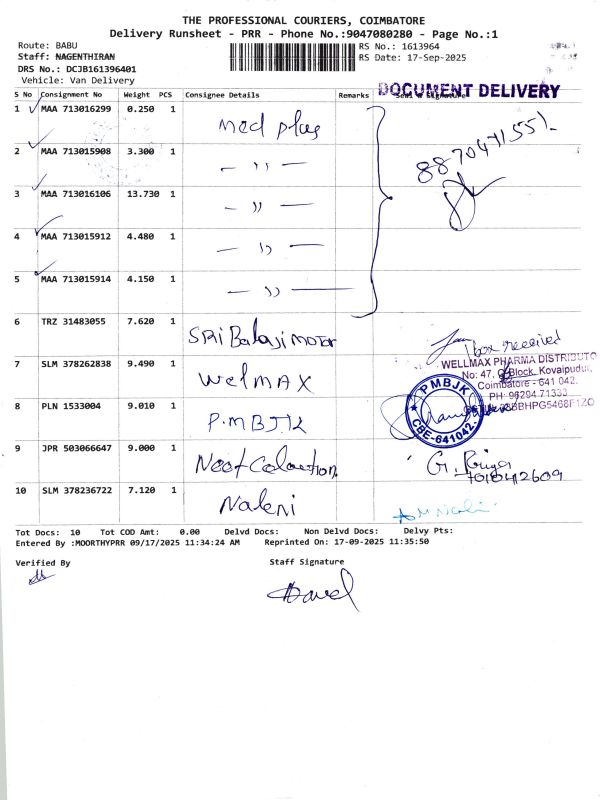 THE PROFESSIONAL COURIERS, COIMBATORE
Delivery Runsheet - PRR - Phone No.:9047080280 - Page No.:1
Route: BABU
RS No.: 1613964
Staff: NAGENTHIRAN
RS Date: 17-Sep-2025
DRS No.: DCJB161396401
Vehicle: Van Delivery
DOCUMENT DELIVERY
S No Consignment No Weight PCS Consignee Details Remarks
1 MAA 713016299 0.250 1 Med plus
2 MAA 713015908 3.300 1 — ,, —
3 MAA 713016106 13.730 1 — ,, —
4 MAA 713015912 4.480 1 — ,, —
5 MAA 713015914 4.150 1 — ,, —
6 TRZ 31483055 7.620 1 SRI Balaji motor
1 box received
7 SLM 378262838 9.490 1 WelMAX
WELLMAX PHARMA DISTRIBUTO
No: 47, Block, Kovaipudur,
Coimbatore - 641 042.
PH: 96294 71333
8 PLN 1533004 9.010 1 P.M B J K
PMBJK
CBE-641042.
9 JPR 503066647 9.000 1
G. Priya
10 SLM 378236722 7.120 1 Nalini
Tot Docs: 10 Tot COD Amt: 0.00 Delvd Docs: Non Delvd Docs: Delvy Pts:
Entered By :MOORTHYPRR 09/17/2025 11:34:24 AM Reprinted On: 17-09-2025 11:35:50
Verified By
Staff Signature